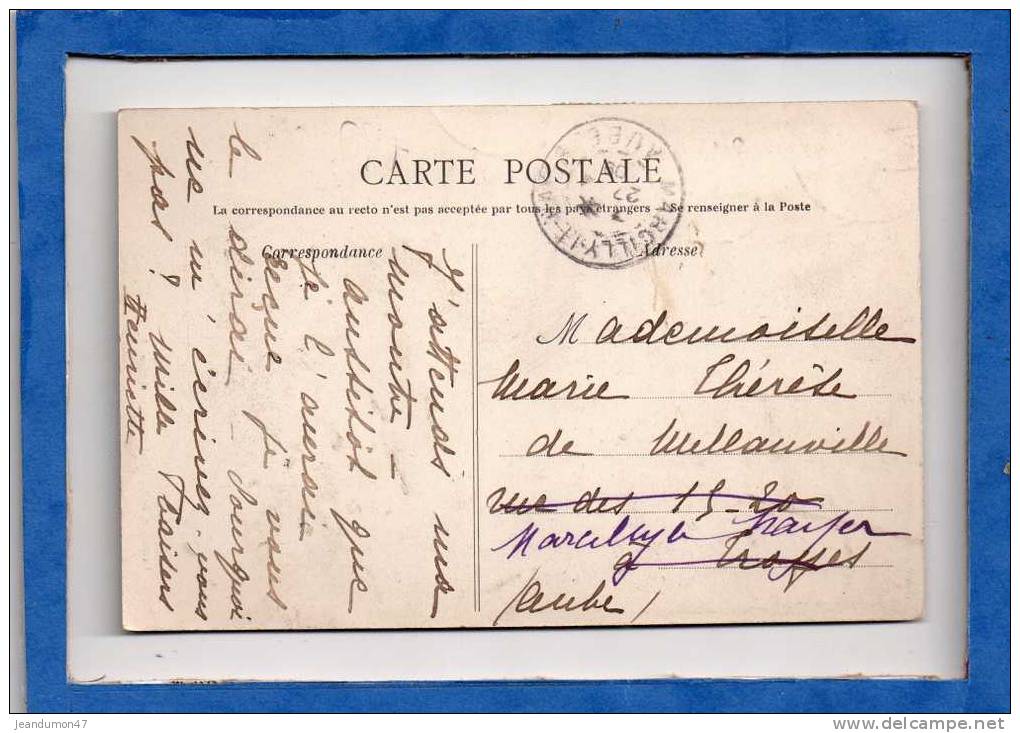 CARTE POSTALE
La correspondance au recto n'est pas acceptée par tous les pays étrangers - Se renseigner à la Poste
Correspondance
Adresse
MARCILLY-LE-
AUBE
J'attends une
montre -
aussitôt que
je l'aurai
reçue je vous
le dirai - Pourquoi
ne m'écrivez-vous
pas? Mille baisers
Henriette
Mademoiselle
Marie Thérèse
de Mellanville
rue des 15-20
Marcilly le Hayer
à Troyes
(Aube)
jeandumon47
delcampe.net